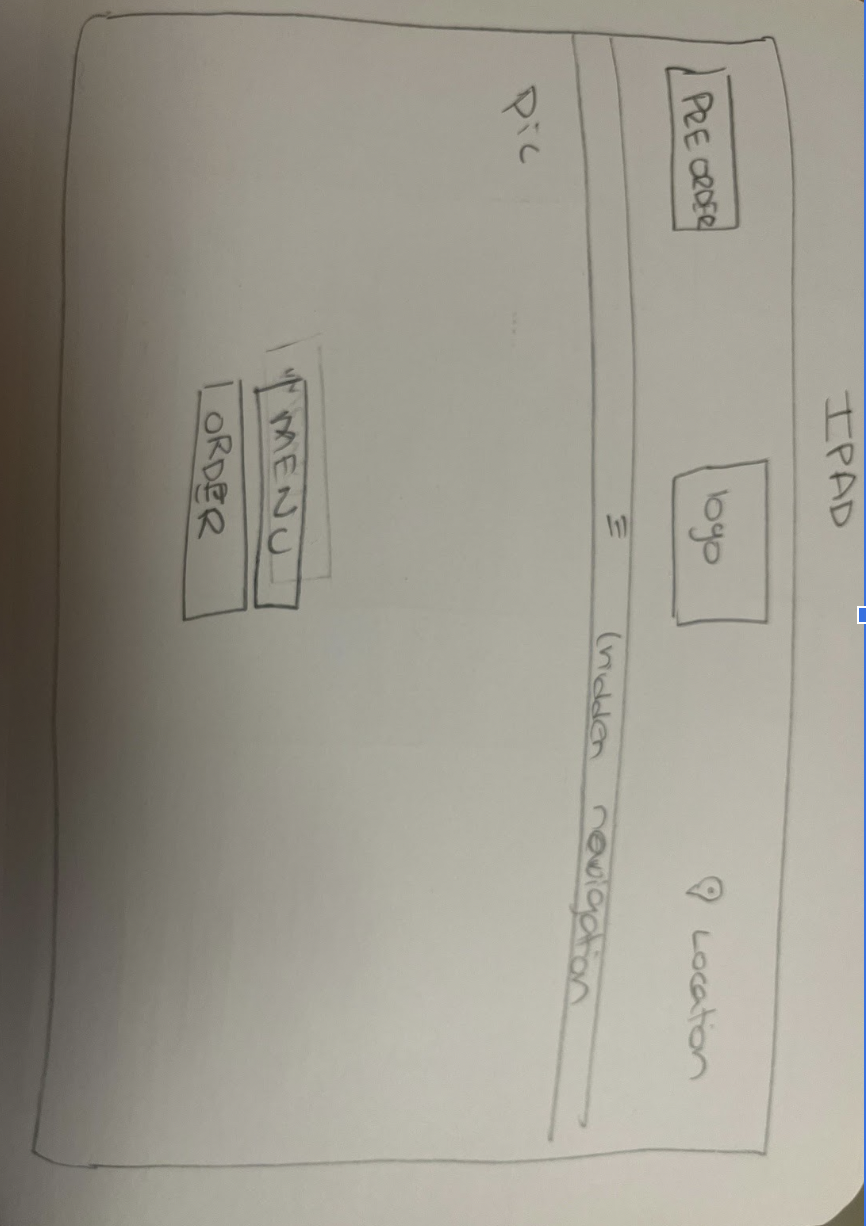 IPAD
PRE ORDER
logo
Location
(hidden navigation
Pic
MENU
ORDER